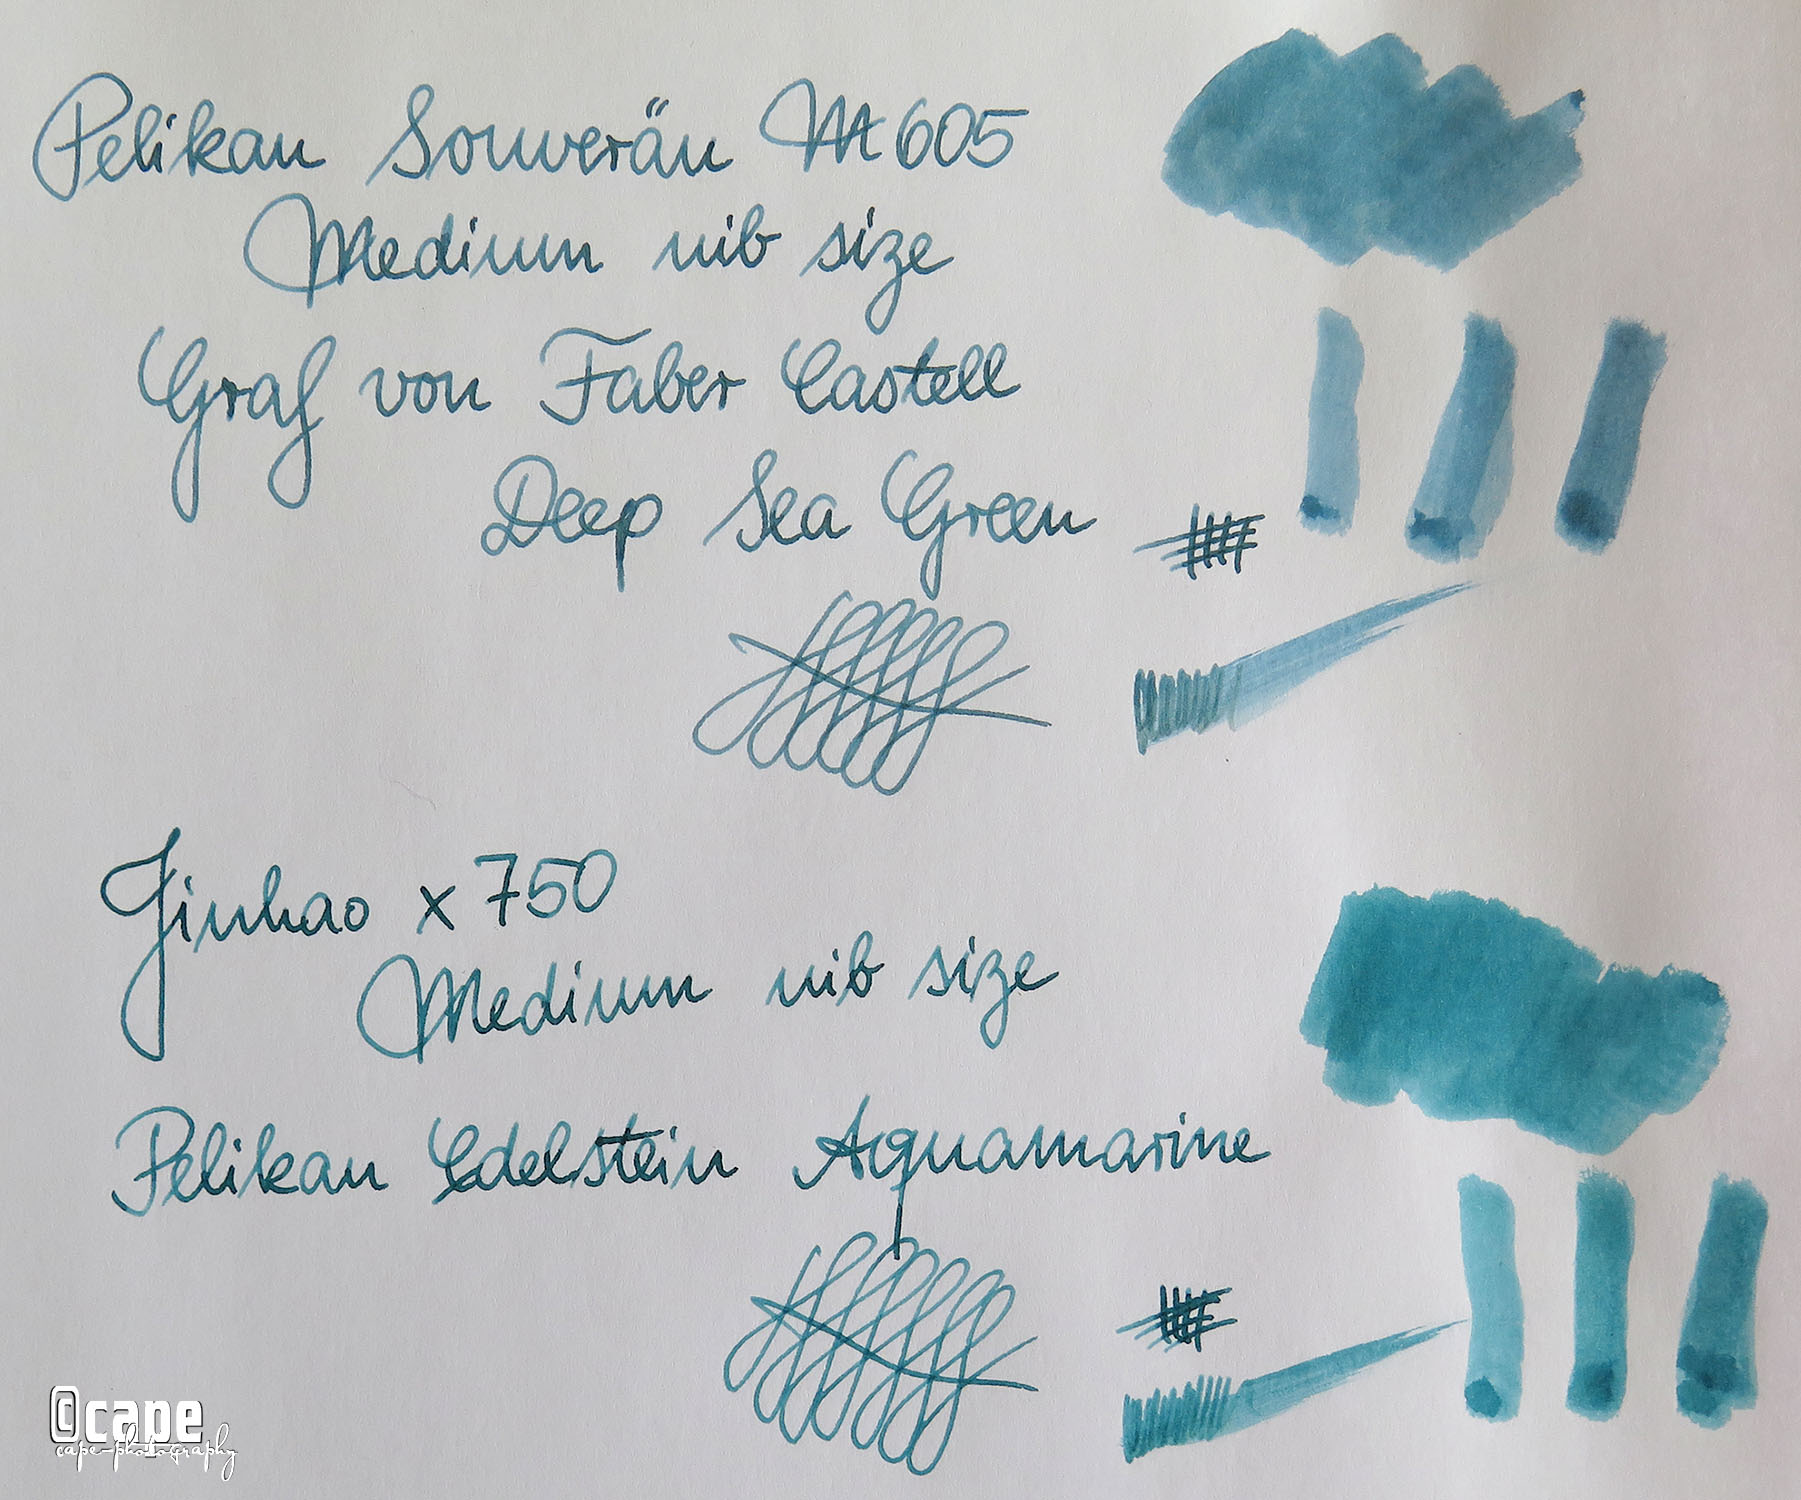 Pelikan Souverän M605
Medium nib size
Graf von Faber Castell
Deep Sea Green
Jinhao x750
Medium nib size
Pelikan Edelstein Aquamarine
©cape
cape-photography